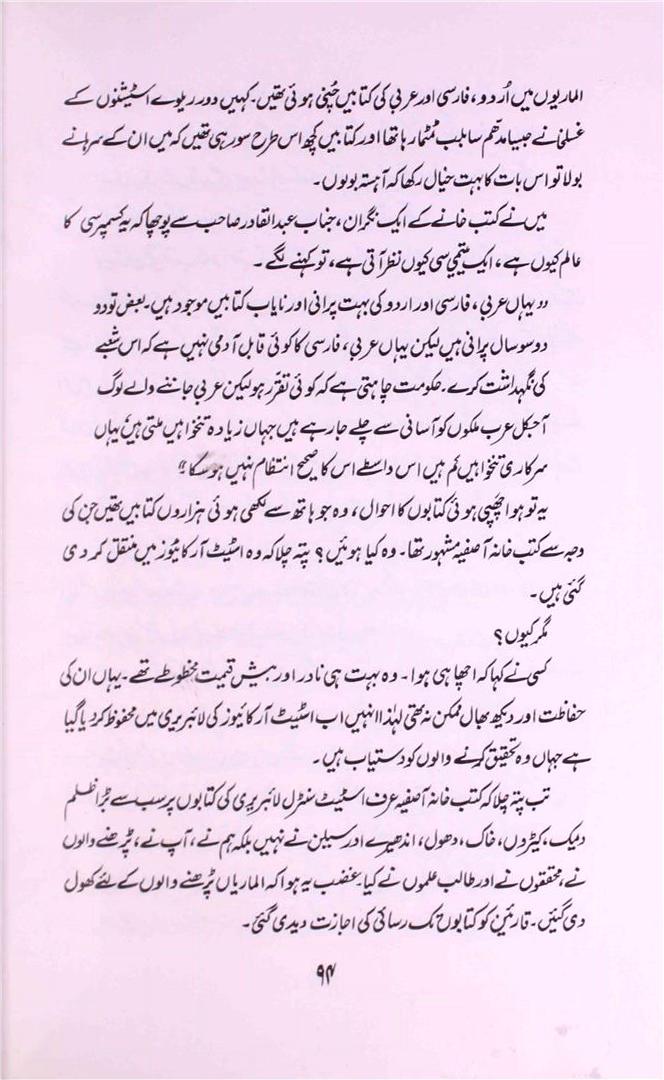 الماریوں میں اُردو، فارسی اور عربی کی کتابیں چُنی ہوئی تھیں۔ کہیں دور ریلوے اسٹیشنوں کے
غسلخانے جیسا مدھم سا بلب ٹمٹما رہا تھا اور کتابیں کچھ اس طرح سو رہی تھیں کہ میں ان کے سرہانے
بولا تو اس بات کا بہت خیال رکھا کہ آہستہ بولوں۔
میں نے کتب خانے کے ایک نگران، جناب عبدالقادر صاحب سے پوچھا کہ یہ کسمپرسی کا
عالم کیوں ہے، ایک یتیمی سی کیوں نظر آتی ہے، تو کہنے لگے۔
“یہاں عربی، فارسی اور اردو کی بہت پرانی اور نایاب کتابیں موجود ہیں۔ بعض تو دو
دو سو سال پرانی ہیں لیکن یہاں عربی، فارسی کا کوئی قابل آدمی نہیں ہے کہ اس شعبے
کی نگہداشت کرے۔ حکومت چاہتی ہے کہ کوئی تقرر ہو لیکن عربی جاننے والے لوگ
آجکل عرب ملکوں کو آسانی سے چلے جا رہے ہیں جہاں زیادہ تنخواہیں ملتی ہیں یہاں
سرکاری تنخواہیں کم ہیں اس واسطے اس کا صحیح انتظام نہیں ہو سکا”
یہ تو ہوا چھپی ہوئی کتابوں کا احوال، وہ جو ہاتھ سے لکھی ہوئی ہزاروں کتابیں تھیں جن کی
وجہ سے کتب خانہ آصفیہ مشہور تھا۔ وہ کیا ہوئیں؟ پتہ چلا کہ وہ اسٹیٹ آرکائیوز میں منتقل کر دی
گئی ہیں۔
مگر کیوں؟
کسی نے کہا کہ اچھا ہی ہوا۔ وہ بہت ہی نادر اور بیش قیمت مخطوطے تھے۔ یہاں ان کی
حفاظت اور دیکھ بھال ممکن نہ تھی لہٰذا انہیں اب اسٹیٹ آرکائیوز کی لائبریری میں محفوظ کر دیا گیا
ہے جہاں وہ تحقیق کرنے والوں کو دستیاب ہیں۔
تب پتہ چلا کہ کتب خانہ آصفیہ عرف اسٹیٹ سنٹرل لائبریری کی کتابوں پر سب سے بڑا ظلم
دیمک، کیڑوں، خاک، دھول، اندھیرے اور سیلن نے نہیں بلکہ ہم نے، آپ نے، پڑھنے والوں
نے، محققوں نے اور طالب علموں نے کیا۔ غضب یہ ہوا کہ الماریاں پڑھنے والوں کے لئے کھول
دی گئیں۔ قارئین کو کتابوں تک رسائی کی اجازت دیدی گئی۔
۹۴